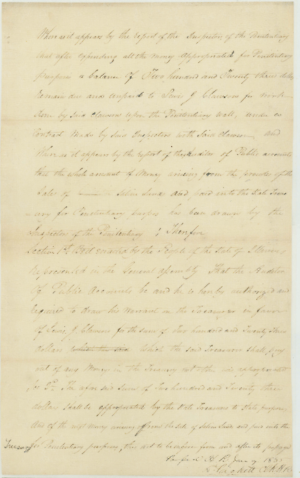 Whereas it appears by the report of the Inspectors of the Penitentiary
and after expending all the money appropriated for Penitentiary
purposes a balance of Two hundred and Twenty three dolls
remain due and unpaid to James J. for work
done by said upon the Penitentiary wall, under a
contract made by said Inspectors with said and
Whereas it appears by the report of the Auditor of Public accounts
that the whole amount of Money arising from the proceeds of the
Sales of Saline Lands and paid into the State Treas
ury for Penitentiary purposes has been drawn by the
Inspectors of the Penitentiary Therefore
Section 1st Be it enacted by the People of the State of Illinois
represented in the General Assembly That the Auditor
of Public Accounts be and he is hereby authorized and
required to draw his warrant on the Treasurer in favor
of James J. for the sum of Two hundred and Twenty three
dollars which the said Treasurer shall pay
out of any Money in the Treasury not otherwise appropriated
Sec 2d The aforesaid sum of Two hundred and Twenty three
dollars shall be appropriated by the State Treasurer to State purposes
out of the next money arising from the sale of Saline Lands and paid into the
Treasury for Penitentiary purposes, this act to be in force from and after its passage